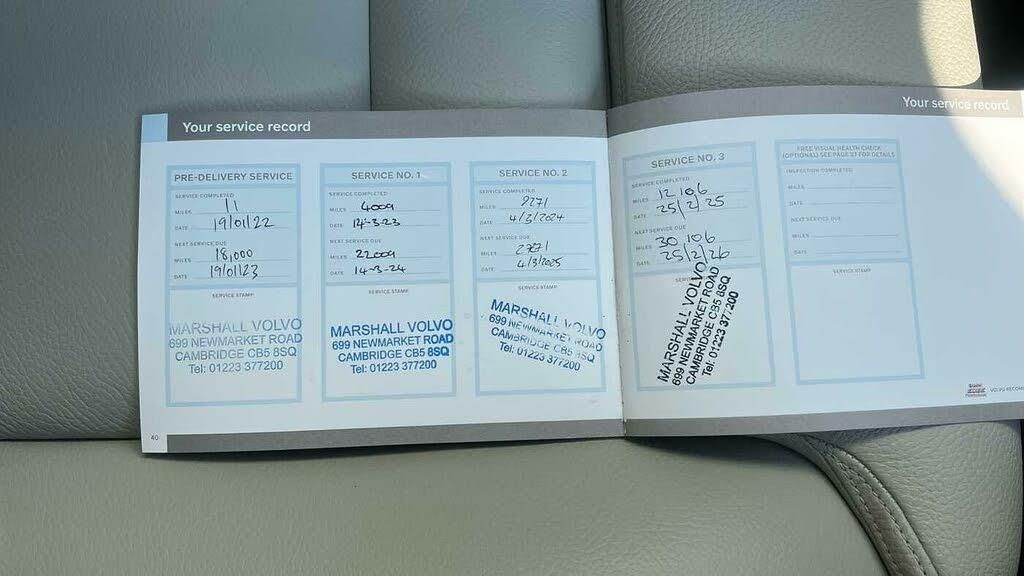 Your service record
PRE-DELIVERY SERVICE
SERVICE COMPLETED
MILES 11
DATE 19/01/22
NEXT SERVICE DUE
MILES 18,000
DATE 19/01/23
SERVICE STAMP
MARSHALL VOLVO
699 NEWMARKET ROAD
CAMBRIDGE CB5 8SQ
Tel: 01223 377200
SERVICE NO. 1
SERVICE COMPLETED
MILES 4009
DATE 14-3-23
NEXT SERVICE DUE
MILES 22009
DATE 14-3-24
SERVICE STAMP
MARSHALL VOLVO
699 NEWMARKET ROAD
CAMBRIDGE CB5 8SQ
Tel: 01223 377200
SERVICE NO. 2
SERVICE COMPLETED
MILES 9271
DATE 4/3/2024
NEXT SERVICE DUE
MILES
DATE 4/3/2025
SERVICE STAMP
MARSHALL VOLVO
699 NEWMARKET ROAD
CAMBRIDGE CB5 8SQ
Tel: 01223 377200
40
Your service record
SERVICE NO. 3
SERVICE COMPLETED
MILES 12 106
DATE 25/2/25
NEXT SERVICE DUE
MILES 30 106
DATE 25/2/26
MARSHALL VOLVO
699 NEWMARKET ROAD
CAMBRIDGE CB5 8SQ
Tel: 01223 377200
FREE VISUAL HEALTH CHECK
(OPTIONAL) SEE PAGE 37 FOR DETAILS
INSPECTION COMPLETED
MILES
DATE
NEXT SERVICE DUE
MILES
DATE
SERVICE STAMP
VOLVO RECOM